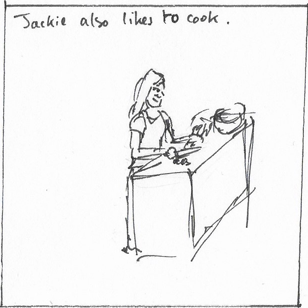 Jackie also likes to cook.